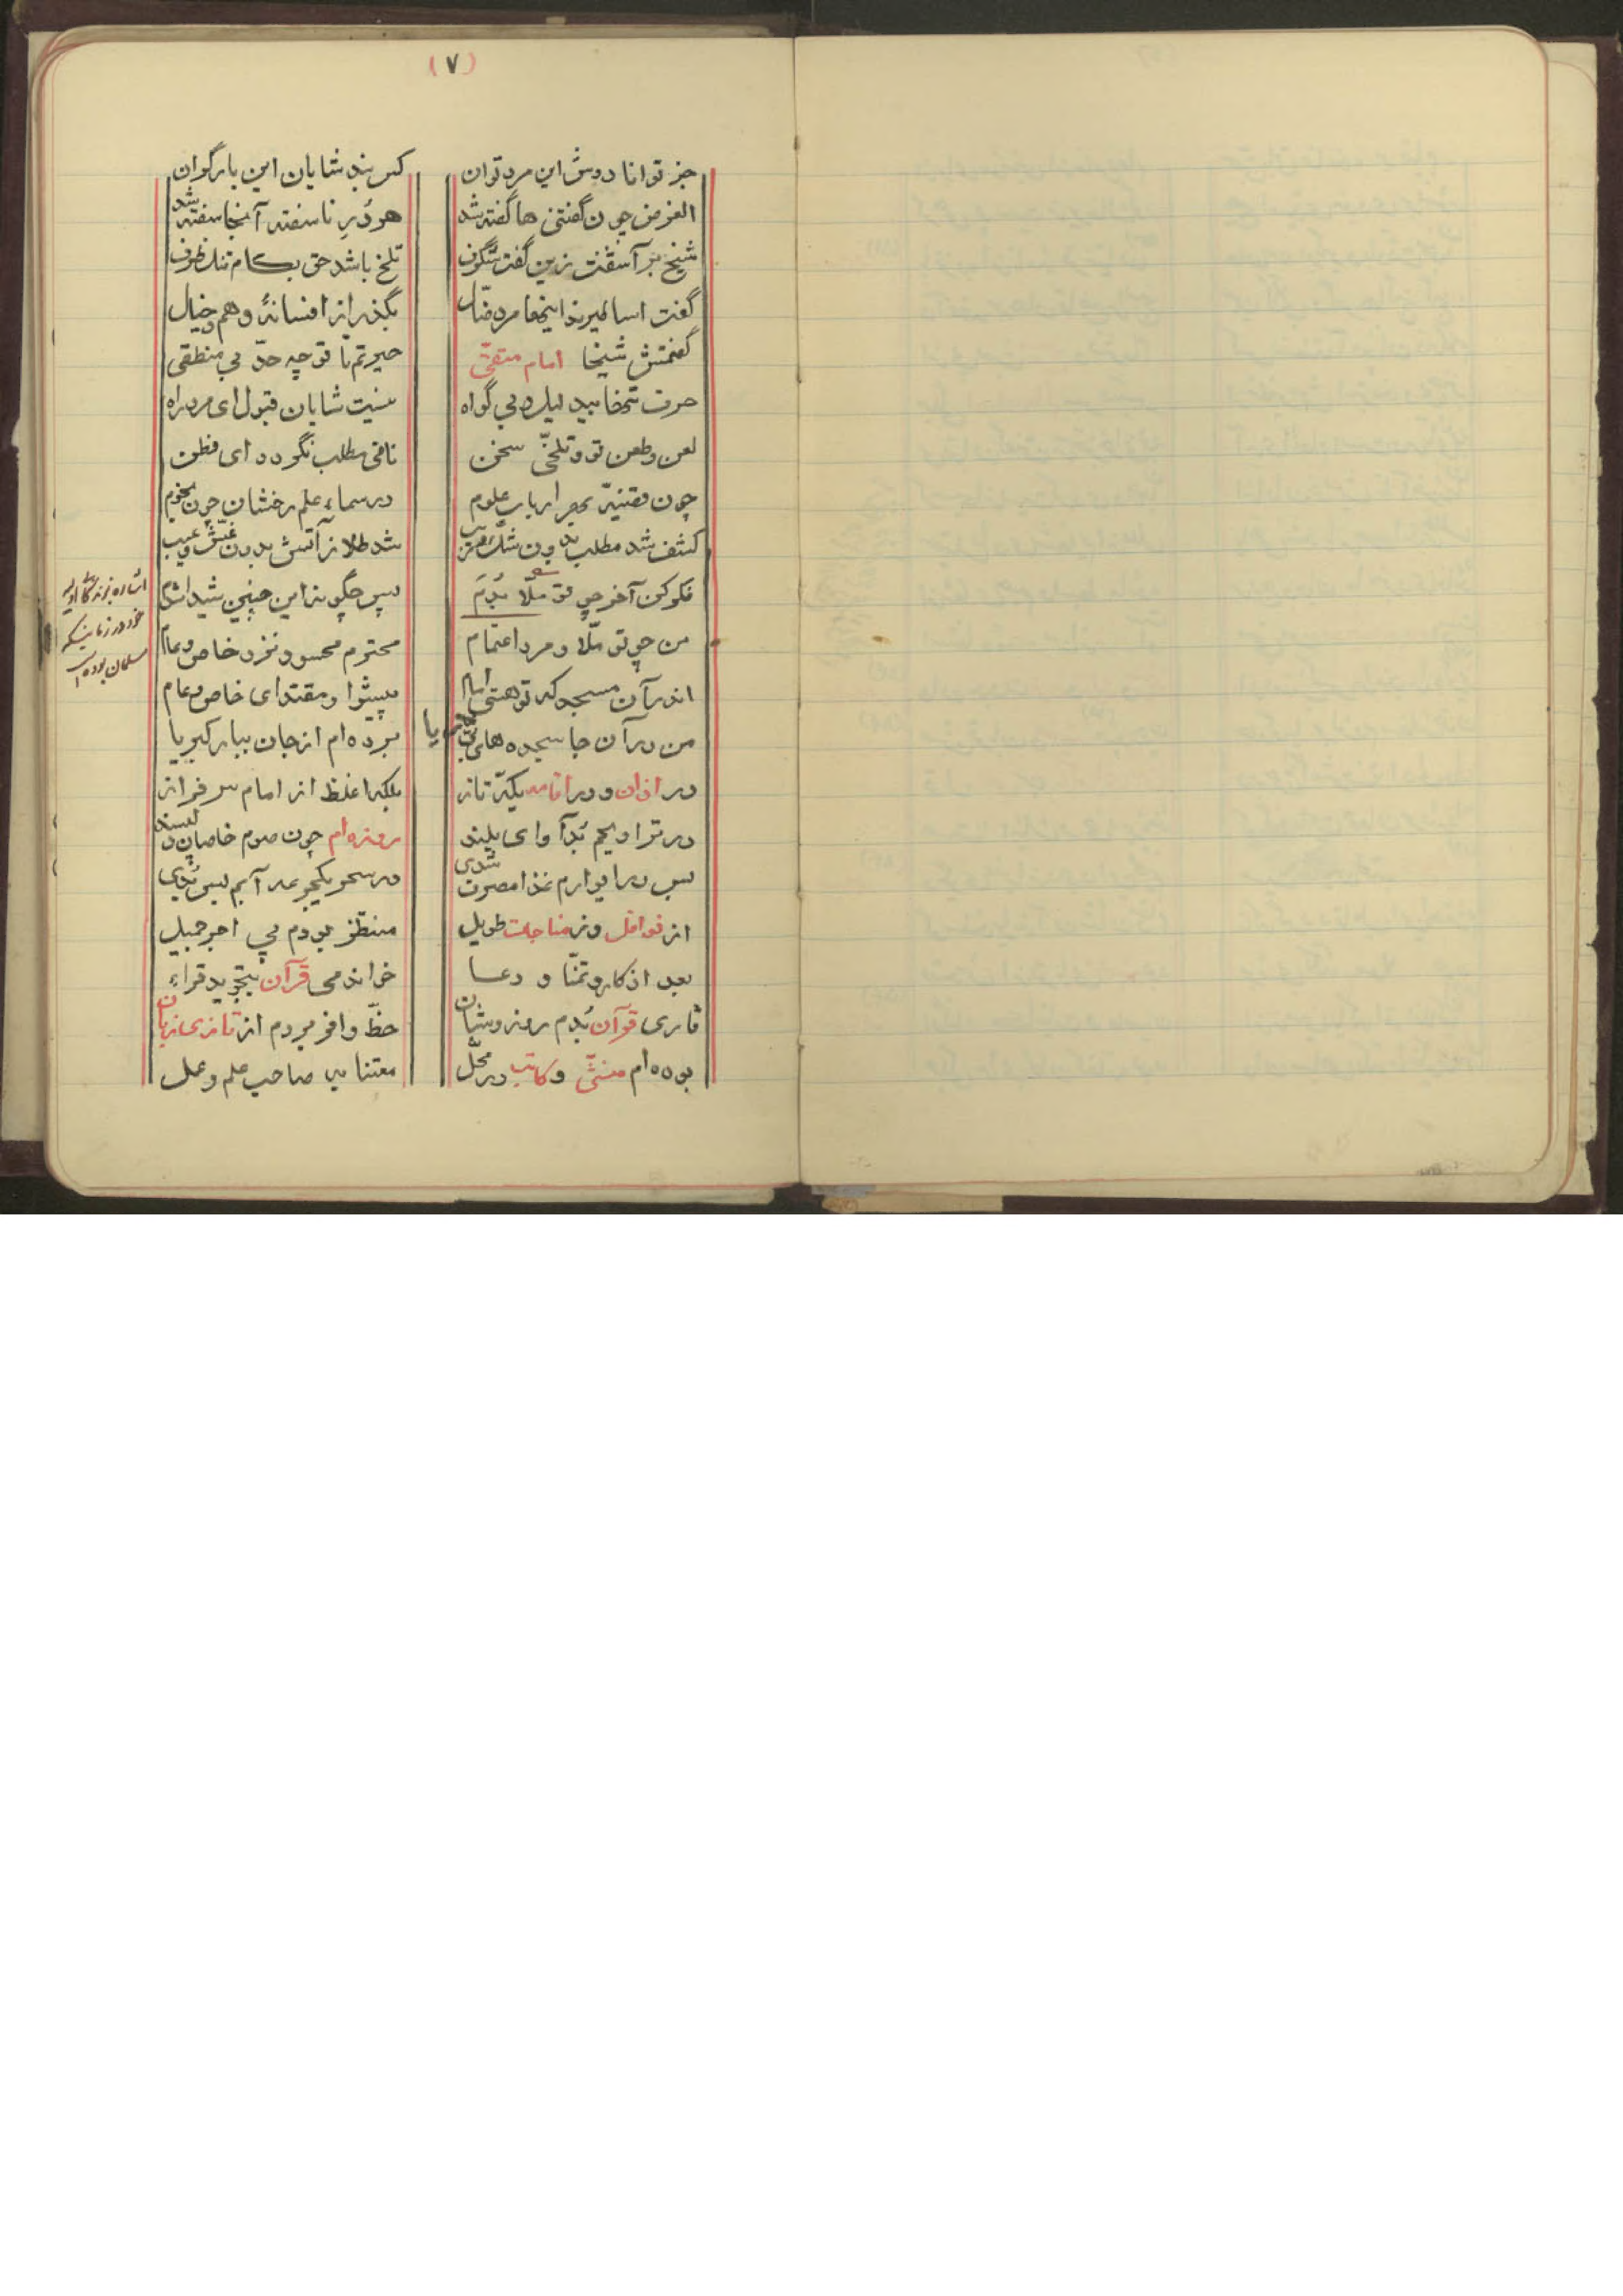 (۷)
جز توانا دوش این مرد توان
کس نبد شایان این بار گران
الغرض چون گفتنی ها گفته شد
هر دُرِ ناسفته آنجا سفته شد
شیخ بر آشفت زین گفت شگرف
تلخ باشد حق بکام تنک ظرف
گفت اینجا مرد ضال
بگذر از افسانهٔ و هم و خیال
گفتمش شیخا امام متقی
حیرتم با تو چه حد بی منطقی
حرف بیدلیل و بی گواه
نیست شایان قبول ای مرد راه
لعن و طعن تو و تلخی سخن
نافی مطلب نگردد ای فطن
چون ارباب علوم
در سماء علم رخشان چون نجوم
کشف شد مطلب بدون شک و ریب
شد طلا ز آتش بدون غش و عیب
فکر کن آخر چو تو ملّا بُدَم
پس چگونه این چنین شیدا شدم
من چو تو ملّا و مرد اعتمام
محترم محسود نزد خاص و عام
اندر آن مسجد که تو هستی امام
پیشوا و مقتدای خاص و عام
من در آن جا سجده های بی ریا
برده ام از جان ببار کبریا
در اذان و در اقامه یکه تاز
بلکه اغلظ از امام سرفراز
در تراویحم بُد آوای بلند
روزه ام چون صوم خاصان
بس در ایوارم غذا مصروف شدی
در سحر یکجرعه آبم بس بُدی
از نوافل وز مناجات طویل
منتظر بودم پی اجر جمیل
بعد اذکار و تمنّا و دعا
خواندمی قرآن بتجوید قراء
قاری قرآن بُدم روز و شبان
حظّ وافر بردم از تازی زبان
بوده ام منشی و کاتب در محلّ
صاحب علم و عمل
اشاره بزندگانی اولیه
خود در زمانیکه
مسلمان بوده است